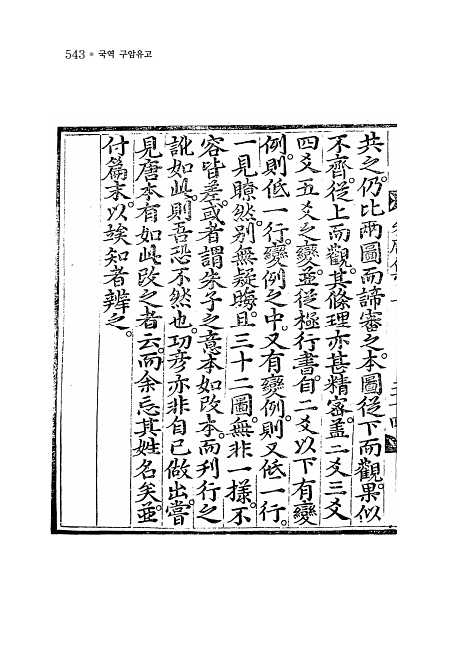 543 ● 국역 구암유고
共之。仍比兩圖而諦審之。本圖從下而觀。果似
不齊。從上而觀。其條理亦甚精密。盖二爻三爻
四爻五爻之變。並從極行書。自二爻以下有變
例。則低一行。變例之中。又有變例。則又低一行。
一見瞭然。别無疑晦。且三十二圖。無非一㨾。不
容皆差。或者謂朱子之意本如改本。而刊行之
訛如此。則吾恐不然也。功彦亦非自已做出。嘗
見唐本有如此改之者云。而余忘其姓名矣。並
付篇末。以竢知者辨之。